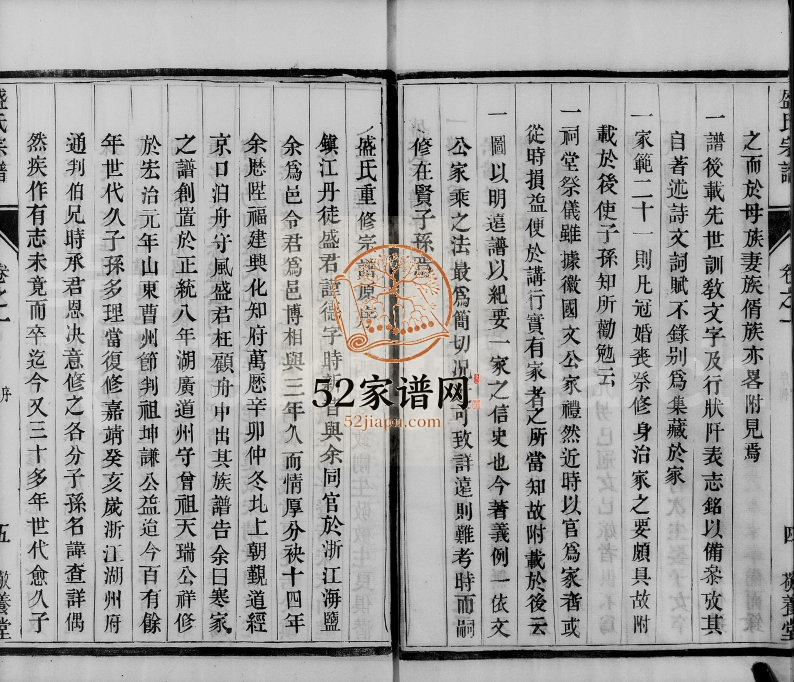 之而於母族妻族偦族亦畧附見焉
一譜後載先世訓敎文字及行狀阡表志銘以備叅攷其
自著述詩文詞賦不錄别爲集藏於家
一家範二十一則凡冠婚喪祭修身治家之要頗具故附
載於後使子孫知所勸勉云
一祠堂祭儀雖據徽國文公家禮然近時以官爲家者或
從時損益便於講行實有家者之所當知故附載於後云
一圖以明遠譜以紀要一家之信史也今著義例一依文
公家乘之法最爲簡切 可致詳遠則難考時而嗣
修在賢子孫焉
四 敬養堂
盛氏宗譜 卷之一 序 五 敬養堂
盛氏重修宗譜原序
鎮江丹徒盛君 字時 與余同官於浙江海鹽
余爲邑令君爲邑博相與三年久而情厚分袂十四年
余歷陞福建興化知府萬歷辛卯仲冬北上朝覲道經
京口泊舟守風盛君枉顧舟中出其族譜告余曰寒家
之譜創置於正統八年湖廣道州守曾祖天瑞公祥修
於宏治元年山東曹州節判祖坤謙公益迨今百有餘
年世代久子孫多理當復修嘉靖癸亥歲浙江湖州府
通判伯兄時承君恩决意修之各分子孫名諱查詳偶
然疾作有志未竟而卒迄今又三十多年世代愈久子
52家谱网
52jiapu.com